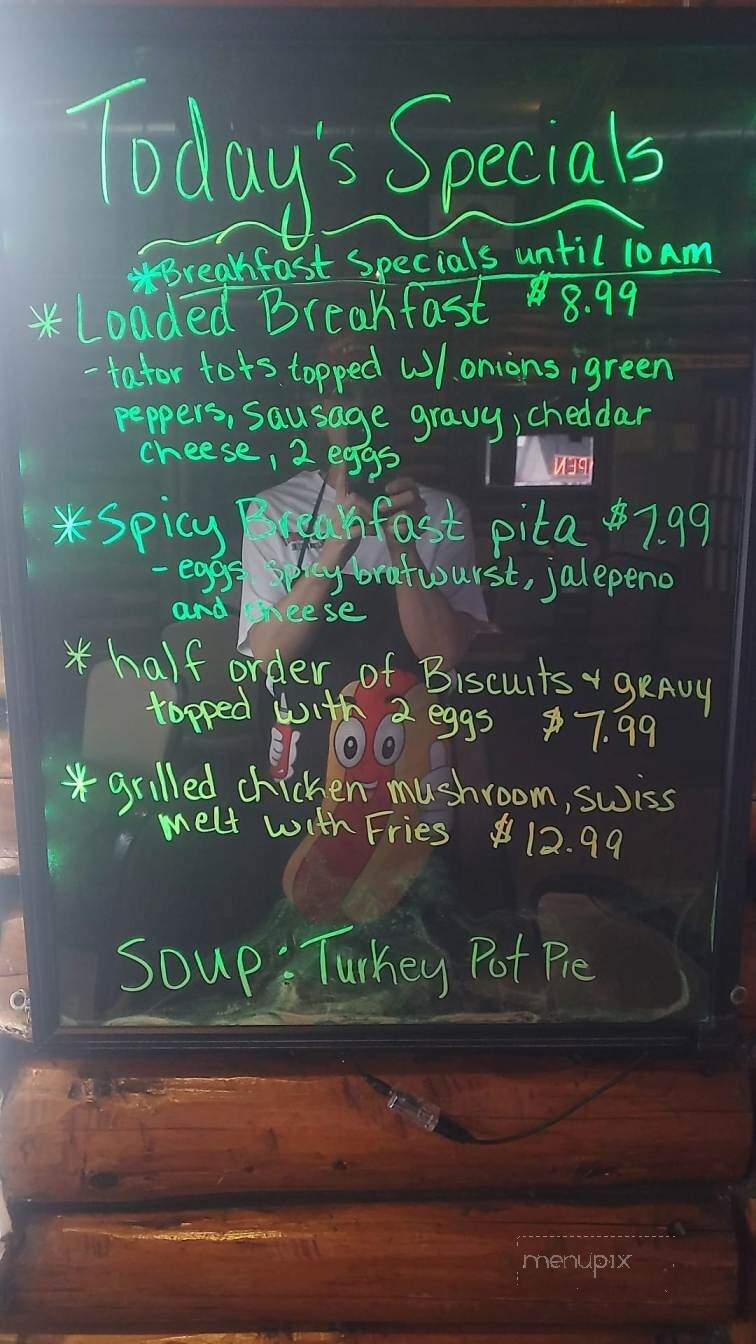 Today's Specials
*Breakfast Specials until 10 AM
* Loaded Breakfast $8.99
- tator tots topped w/ onions, green
peppers, sausage gravy, cheddar
cheese, 2 eggs
* Spicy Breakfast pita $7.99
- eggs, spicy bratwurst, jalepeno
and cheese
* half order of Biscuits & gravy
topped with 2 eggs $7.99
* grilled chicken mushroom, swiss
melt with Fries $12.99
Soup: Turkey Pot Pie
OPEN
menupix